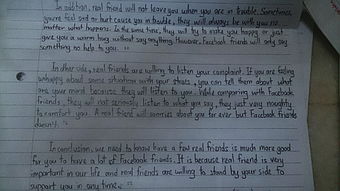 In addition, real friend will not leave you when you are in trouble. Sometimes,
you're feel sad or hurt cause you in trouble, they will always be with you no
matter what happens. In the same time, they will try to make you happy or just
give you a warm hug without say anything. However, Facebook friends will only say
something no help to you.
In other side, real friends are willing to listen your complaint. If you are feeling
unhappy about some situation with your, you can tell them about what
are your mind because they will listen to you. While comparing with Facebook
friends, they will not seriously listen to what you say, they just very
to comfort you. A real friend will worries about you for ever but Facebook friends
doesn't.
In conclusion, we need to know have a few real friends is much more good
for you to have a lot of Facebook friends. It is because real friend is very
important in our life and real friends are willing to stand by your side to
support you in any time.